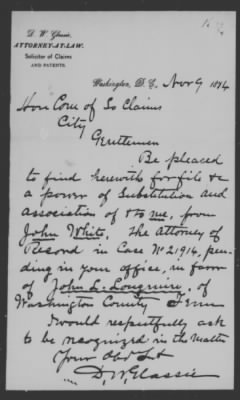 D. W. Glassie,
ATTORNEY-AT-LAW.
Solicitor of Claims
AND PATENTS.
Washington, D. C., Nov 9 1874
Hon Com of So Claims
City
Gentlemen
Be pleased
to find herewith for file &c
a power of Substitution and
association of & to me, from
John White, the attorney of
Record in Case No 21,914, pen-
ding in your office, in favor
of John L. Longmire, of
Washington County Tenn
I would respectfully ask
to be recognized in the matter
Your Obt Svt
D. W. Glassie